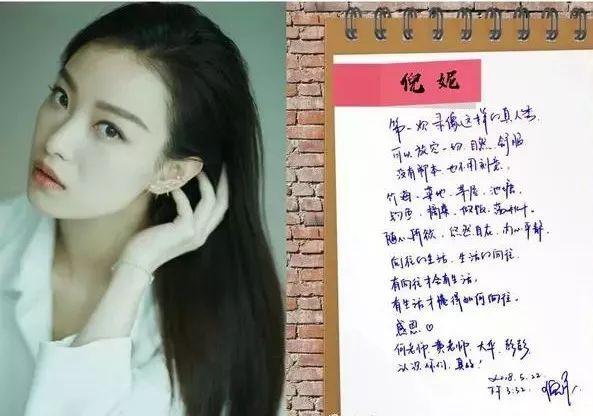 倪妮
第一次录像这样的真人秀
可以放空一切、自然、舒服
没有剧本 也不用刻意、
竹海、菜地、茅屋、池塘、
钓鱼、摘菜、做饭、荡秋千、
随心所欲、悠然自在、内心平静
向往的生活、生活的向往
有向往才会有生活,
有生活才懂得如何向往。
感恩♡
何老师、黄老师、大华、彭彭
认识你们、真好!
2018.5.22
下午3:52
倪妮